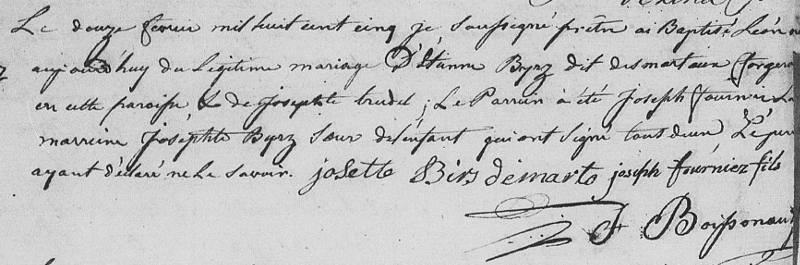 Le douze fevrier mil huit cent cinq je soussigné prêtre ai Baptisé Léon né
aujourd'huy du Légitime mariage D'Etienne Byrz dit desmartaux forgeron
en cette paroisse & de Josephte trudel; Le Parrain à été Joseph fournier La
marreine Joséphte Byrz Sœur de l'enfant qui ont signé tous deux Le pere
ayant déclaré ne Le Savoir. josette Birs demarto joseph fourniez fils
J Boissonault